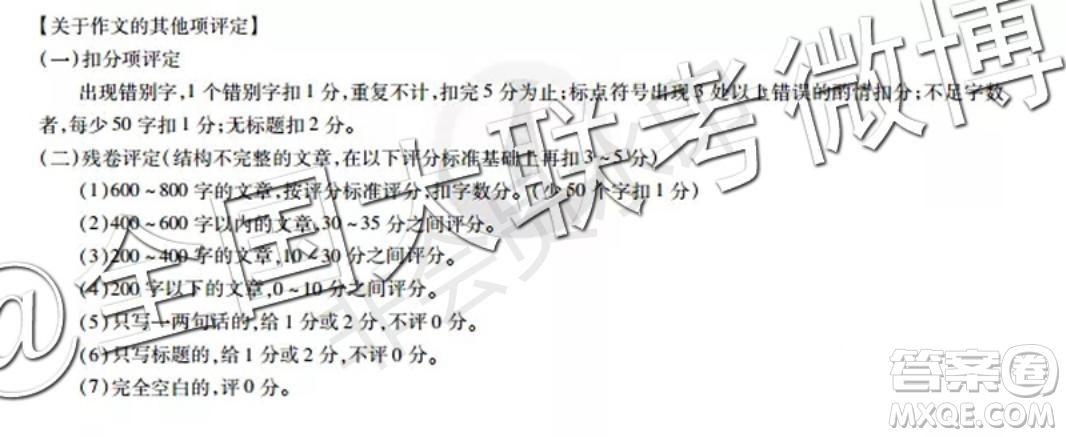 【关于作文的其他项评定】
(一)扣分项评定
出现错别字,1个错别字扣1分,重复不计,扣完5分为止;标点符号出现3处以上错误的酌情扣分;不足字数
者,每少50字扣1分;无标题扣2分。
(二)残卷评定(结构不完整的文章,在以下评分标准基础上再扣3~5分)
(1)600~800字的文章,按评分标准评分,扣字数分。(少50个字扣1分)
(2)400~600字以内的文章,30~35分之间评分。
(3)200~400字的文章,10~30分之间评分。
(4)200字以下的文章,0~10分之间评分。
(5)只写一两句话的,给1分或2分,不评0分。
(6)只写标题的,给1分或2分,不评0分。
(7)完全空白的,评0分。
@全国大联考微博
非会员水印
答案卷
MXQE.COM